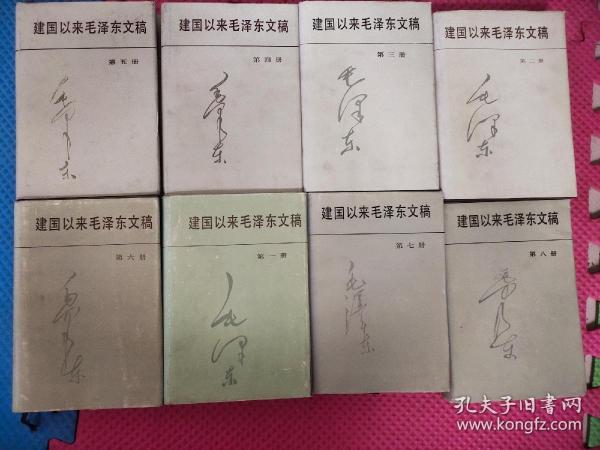 建国以来毛泽东文稿
第五册
毛泽东
建国以来毛泽东文稿
第四册
毛泽东
建国以来毛泽东文稿
第三册
毛泽东
建国以来毛泽东文稿
第二册
毛泽东
建国以来毛泽东文稿
第六册
毛泽东
建国以来毛泽东文稿
第一册
毛泽东
建国以来毛泽东文稿
第七册
毛泽东
建国以来毛泽东文稿
第八册
毛泽东
孔夫子旧书网
www.kongfz.com